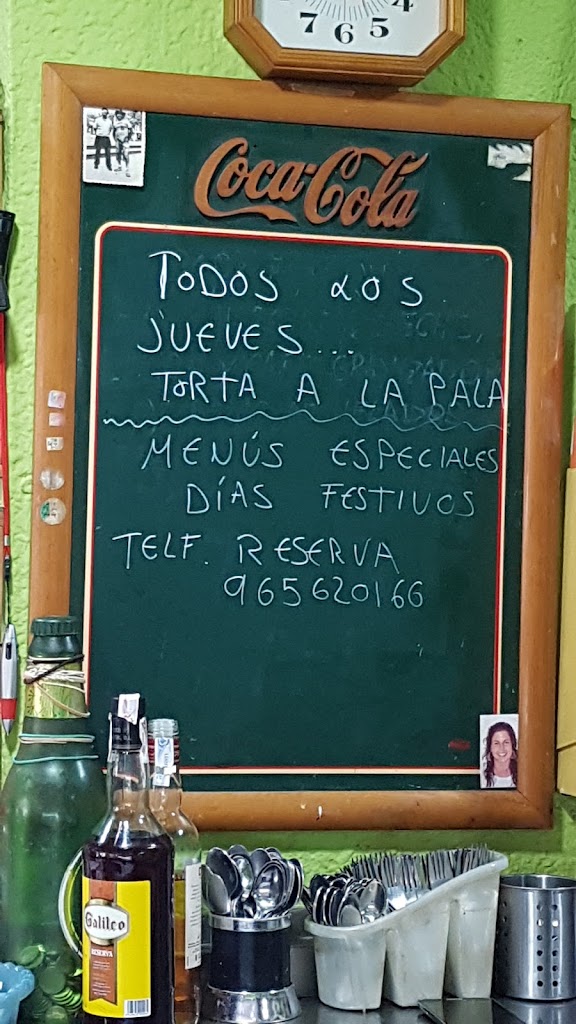 7 6 5 4
Coca-Cola
TODOS LOS
JUEVES...
TORTA A LA PALA
MENÚS ESPECIALES
DÍAS FESTIVOS
TELF. RESERVA
965620166
Galileo
RESERVA